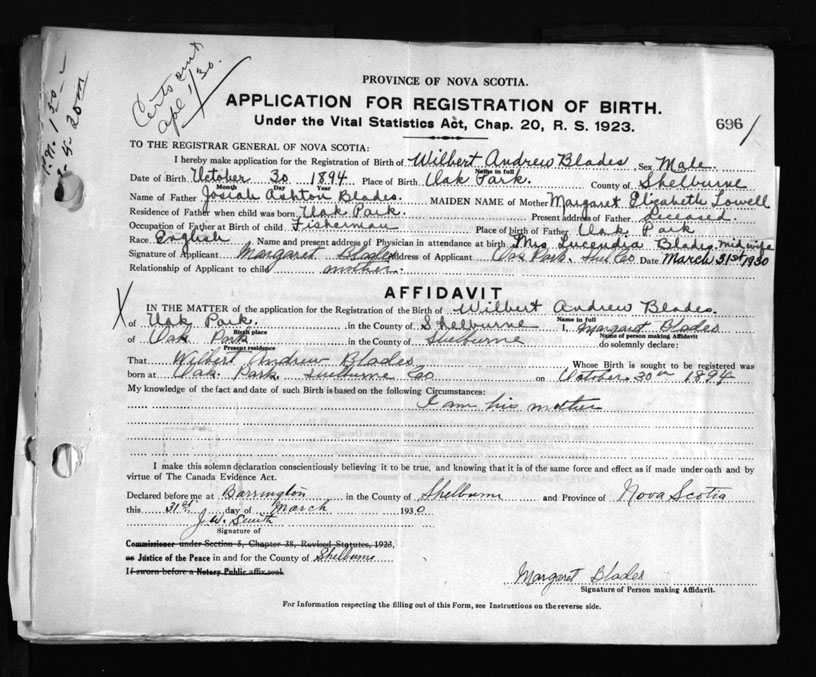 Certs out
Apl 1/30.
PROVINCE OF NOVA SCOTIA.
APPLICATION FOR REGISTRATION OF BIRTH.
Under the Vital Statistics Act, Chap. 20, R. S. 1923.
696/
TO THE REGISTRAR GENERAL OF NOVA SCOTIA:
I hereby make application for the Registration of Birth of Wilbert Andrew Blades Sex Male.
Name in full
Date of Birth October 30 1894 Place of Birth Oak Park. County of Shelburne
Month Day Year
Name of Father Josiah Ashton Blades. MAIDEN NAME of Mother Margaret Elizabeth Lowell
Residence of Father when child was born Oak Park. Present address of Father Deceased.
Occupation of Father at Birth of child Fisherman Place of birth of Father Oak Park
Race English Name and present address of Physician in attendance at birth Mrs Lucendia Blades, midwife
Signature of Applicant Margaret Blades Address of Applicant Oak Park. Shel Co Date March 31st 1930
Relationship of Applicant to child mother.
AFFIDAVIT
X
IN THE MATTER of the application for the Registration of the Birth of Wilbert Andrew Blades.
Name in full
of Oak Park. in the County of Shelburne I, Margaret Blades
Birth place Name of person making Affidavit
of Oak Park in the County of Shelburne do solemnly declare:
Present residence
That Wilbert Andrew Blades Whose Birth is sought to be registered was
born at Oak Park Shelburne Co on October 30th 1894
My knowledge of the fact and date of such Birth is based on the following Circumstances:
I am his mother
I make this solemn declaration conscientiously believing it to be true, and knowing that it is of the same force and effect as if made under oath and by
virtue of The Canada Evidence Act.
Declared before me at Barrington in the County of Shelburne and Province of Nova Scotia
this 31st day of March 1930
J. W. Smith
Signature of
Commissioner under Section 5, Chapter 38, Revised Statutes, 1923,
or Justice of the Peace in and for the County of Shelburne
If sworn before a Notary Public affix seal
Margaret Blades
Signature of Person making Affidavit.
For Information respecting the filling out of this Form, see Instructions on the reverse side.